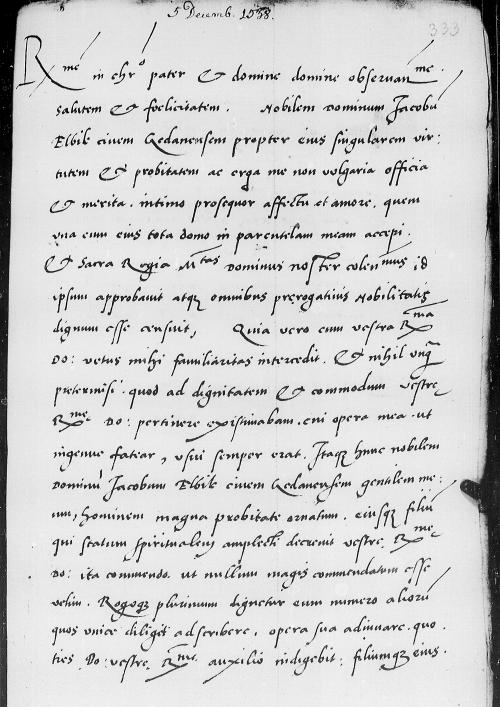 5 Decemb. 1538.
333
Rme in chro pater & domine domine observanme.
Salutem & foelicitatem. Nobilem Dominum Jacobu
Elbik civem Gedanensem propter eius singularem vir:
tutem & probitatem ac erga me non vulgaria officia
& merita. intimo prosequor affectu et amore, quem
una cum eius tota domo in parentelam meam accepi.
& Sacra Regia Mtas Dominus noster colenmus id
ipsum approbavit atq3 omnibus prerogativis Nobilitatis
dignum esse censuit, Quia vero cum vestra Rma
Do: vetus mihi familiaritas intercedit. & nihil unq
pretermisi. quod ad dignitatem & commodum vestre
Rme Do: pertinere existimabam, cui opera mea. ut
ingenue fatear, usui semper erat. Itaq3 hunc nobilem
Dominu Jacobum Elbik civem Gedanensem gentilem me:
um, hominem magna probitate ornatum. eiusq3 filiu
qui statum spiritualem amplecti decrevit vestre Rme
Do: ita commendo. ut nullum magis commendatum esse
velim. Rogoq3 plurimum dignetur eum numero alioru
quos unice diligit adscribere, opera sua adiuvare. quo
ties Do: vestre Rme auxilio indigebit: filiumq3 eius.